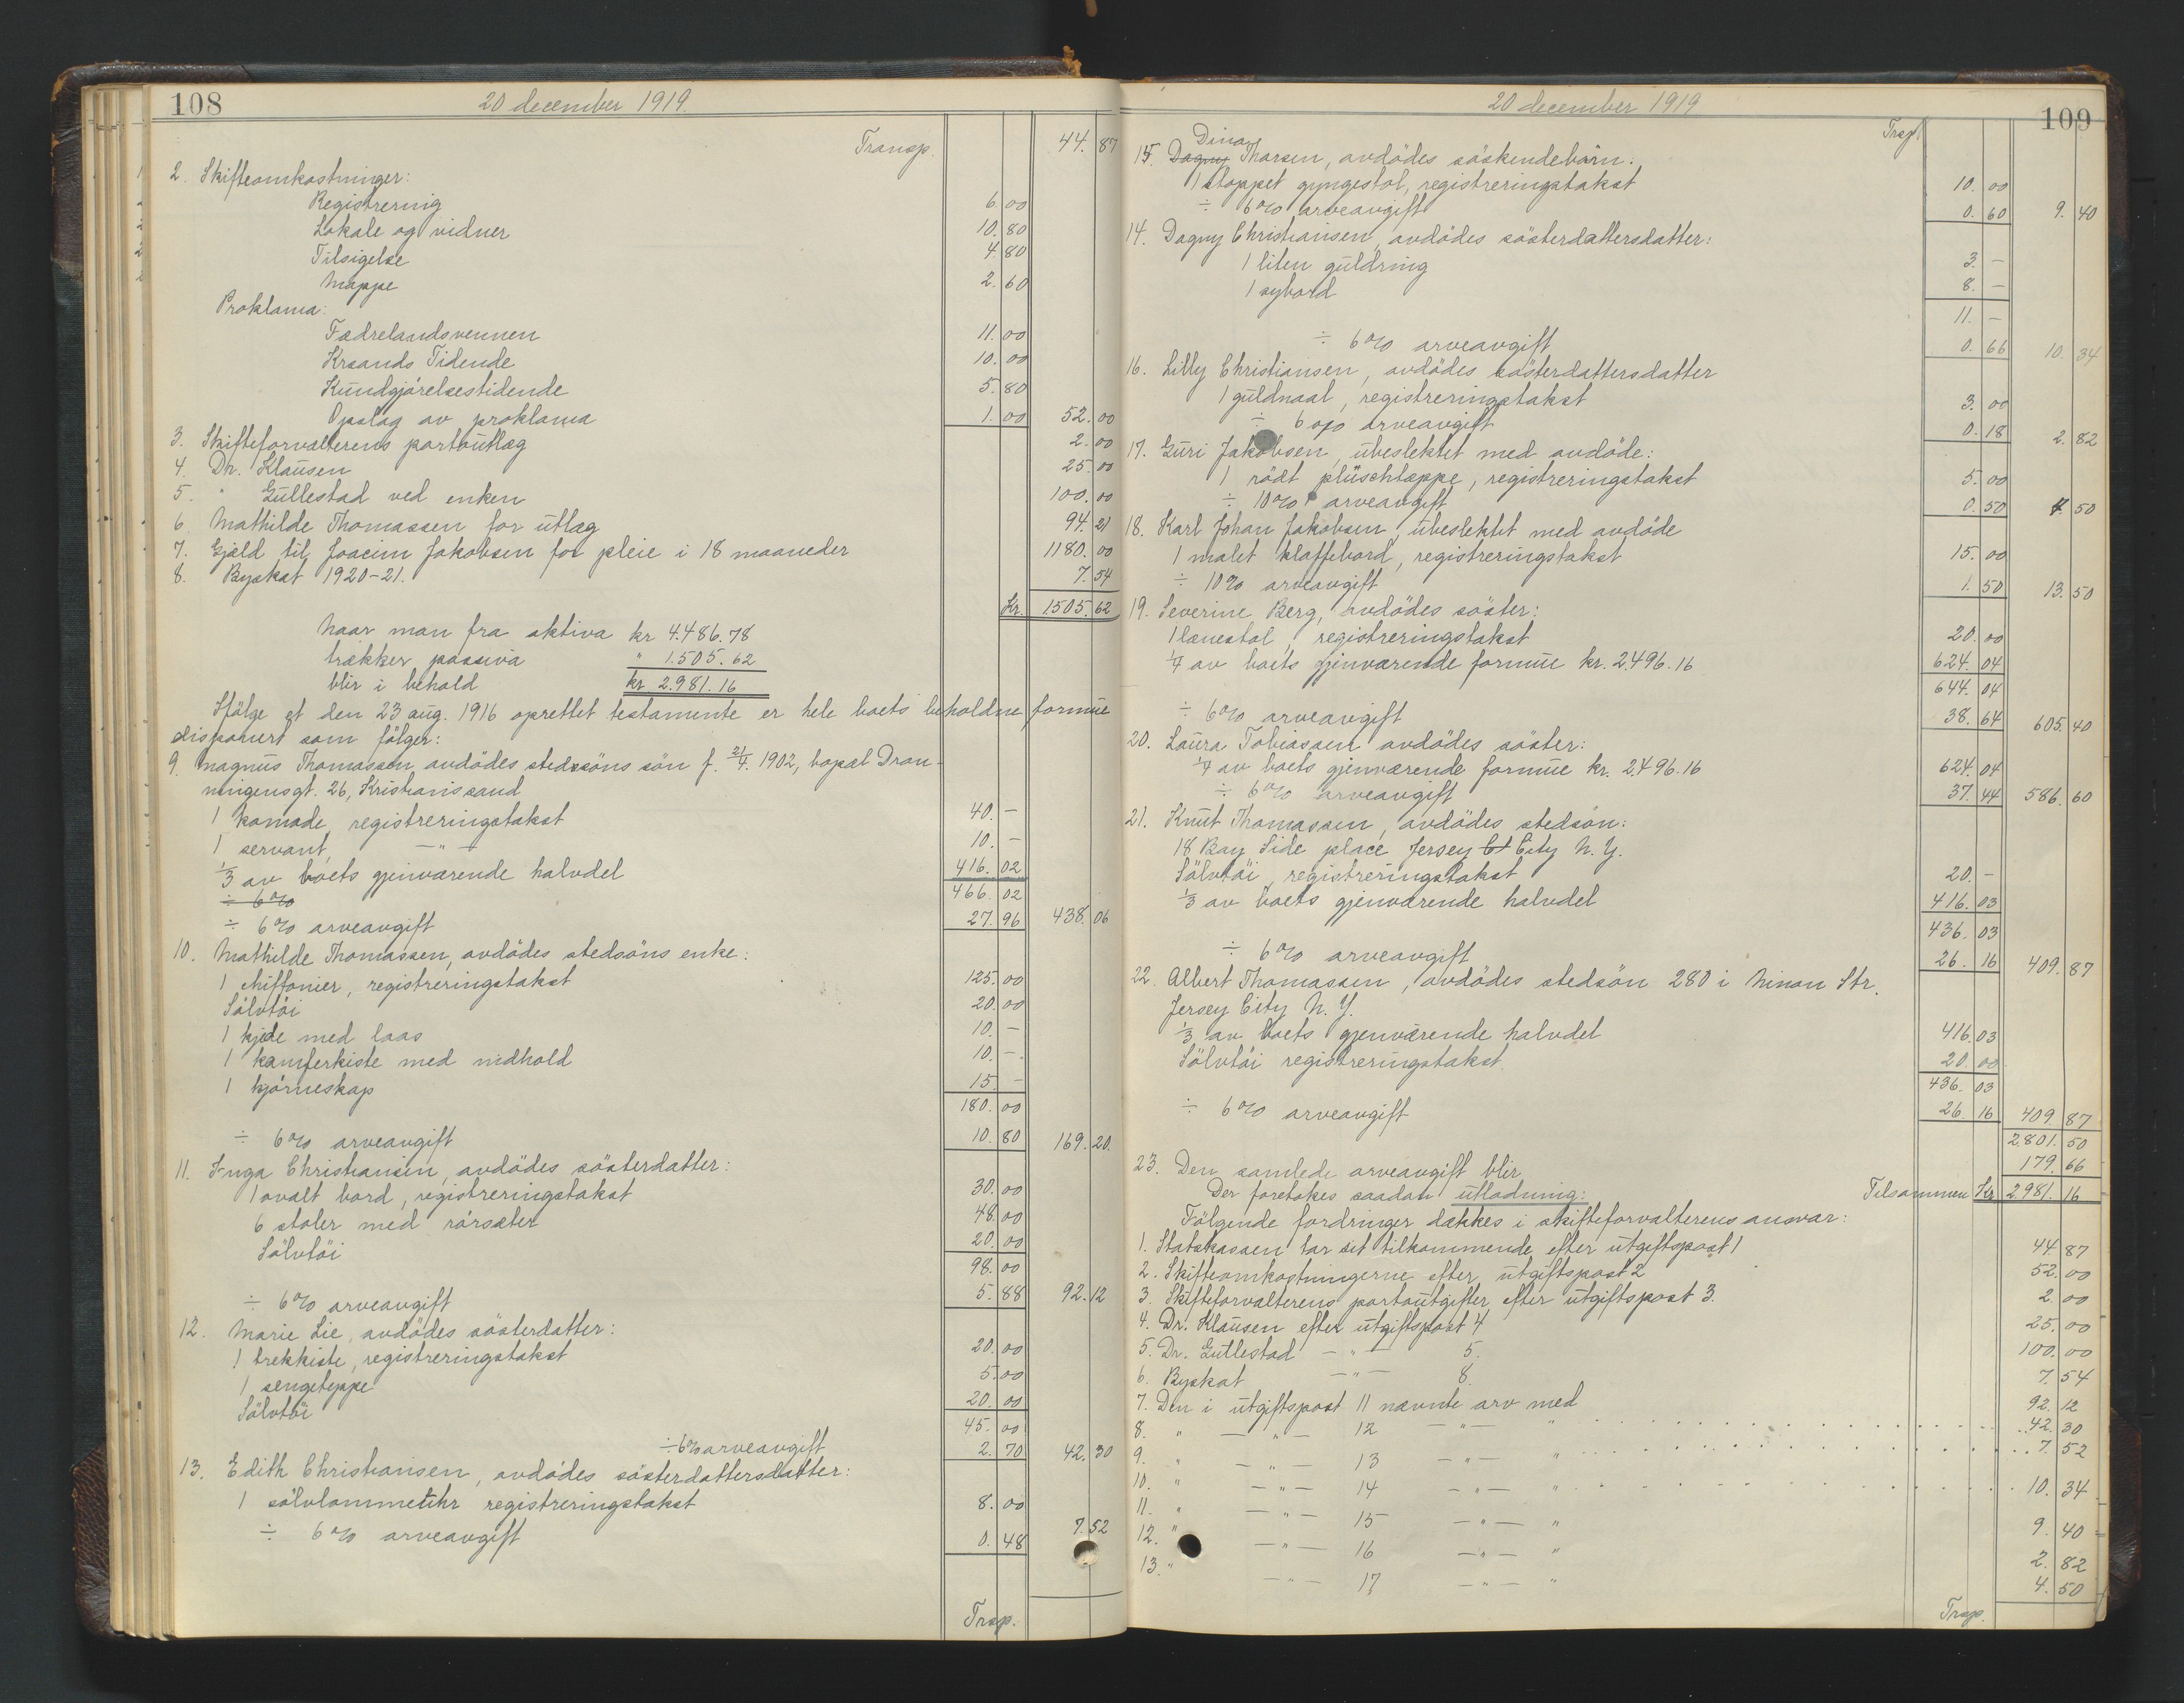 108
20 december 1919.
Transp. 44.87
2. Skifteomkostninger:
Registrering 6.00
Lokale og vidner 10.80
Tilsigelse 4.80
Mappe 2.60
Proklama:
Fædrelandsvennen 11.00
Krsands Tidende 10.00
Kundgjörelsestidende 5.80
Opslag av proklama 1.00 52.00
3. Skifteforvalterens portoutlæg 2.00
4. Dr. Klausen 25.00
5. " Gullestad ved enken 100.00
6. Mathilde Thomassen for utlæg 94.21
7. Gjæld til Joacim Jakobsen for pleie i 18 maaneder 1180.00
8. Byskat 1920-21. 7.54
Kr. 1505.62
Naar man fra aktiva kr 4.486.78
trækker passiva " 1.505.62
blir i behold kr 2.981.16
Ifölge et den 23 aug. 1916 oprettet testamente er hele boets beholdne formue
disponert som fölger:
9. Magnus Thomassen avdödes stedsöns sön f. 21/4. 1902, bopæl Dron-
ningensgt. 26, Kristianssand
1 komode, registreringstakst 40.-
1 servant, -"- 10.-
1/3 av boets gjenværende halvdel 416.02
÷ 6% 466.02
÷ 6% arveavgift 27.96 438.06
10. Mathilde Thomassen, avdödes stedsöns enke:
1 chiffonier, registreringstakst 125.00
Sölvtöi 20.00
1 kjede med laas 10.-
1 kamferkiste med indhold 10.-
1 hjörneskap 15.-
180.00
÷ 6% arveavgift 10.80 169.20.
11. Inga Christiansen, avdödes sösterdatter:
1 ovalt bord, registreringstakst 30.00
6 stoler med rörsæter 48.00
Sölvtöi 20.00
98.00
÷ 6% arveavgift 5.88 92.12
12. Marie Lie, avdödes sösterdatter:
1 trekkiste, registreringstakst 20.00
1 sengeteppe 5.00
Sölvtöi 20.00
45.00
÷ 6% arveavgift 2.70 42.30
13. Edith Christiansen, avdödes sösterdattersdatter:
1 sölvlommeuhr registreringstakst 8.00
÷ 6% arveavgift 0.48 7.52
Trsp.
109
20 december 1919
Trsp.
Dina
15. Dagny Thorsen, avdödes söskendebarn.
1 stoppet gyngestol, registreringstakst 10.00
÷ 6% arveavgift 0.60 9.40
14. Dagny Christiansen, avdödes sösterdattersdatter:
1 liten guldring 3.-
1 sybord 8.-
11.-
÷ 6% arveavgift 0.66 10.34
16. Lilly Christiansen, avdödes sösterdattersdatter
1 guldnaal, registreringstakst 3.00
÷ 6% arveavgift 0.18 2.82
17. Guri Jakobsen, ubeslektet med avdöde:
1 rödt plüschtæppe, registreringstakst 5.00
÷ 10% arveavgift 0.50 4.50
18. Karl Johan Jakobsen, ubeslektet med avdöde
1 malet klaffebord, registreringstakst 15.00
÷ 10% arveavgift 1.50 13.50
19. Severine Berg, avdödes söster:
1 lænestol, registreringstakst 20.00
1/4 av boets gjenværende formue kr. 2.496.16 624.04
644.04
÷ 6% arveavgift 38.64 605.40
20. Laura Tobiassen avdödes söster:
1/4 av boets gjenværende formue kr. 2.496.16 624.04
÷ 6% arveavgift 37.44 586.60
21. Knut Thomassen, avdödes stedsön:
18 Bay Side place Jersey Ct City N. Y.
Sölvtöi, registreringstakst 20.-
1/3 av boets gjenværende halvdel 416.03
436.03
÷ 6% arveavgift 26.16 409.87
22. Albert Thomassen, avdödes stedsön 280 i Ninon Str.
Jersey City N. Y.
1/3 av boets gjenværende halvdel 416.03
Sölvtöi registreringstakst. 20.00
436.03
÷ 6% arveavgift 26.16 409.87
2.801.50
23. Den samlede arveavgift blir 179.66
Der foretakes saadan utlodning: Tilsammen Kr 2981.16
Fölgende fordringer dækkes i skifteforvalterens ansvar:
1. Statskassen tar sit tilkommende efter utgiftspost 1 44.87
2. Skifteomkostningerne efter utgiftspost 2 52.00
3. Skifteforvalterens portoutgifter efter utgiftspost 3. 2.00
4. Dr. Klausen efter utgiftspost 4 25.00
5. Dr. Gullestad -"- 5. 100.00
6. Byskat -"- 8. 7.54
7. Den i utgiftspost 11 nævnte arv med 92.12
8. " -"- 12 -"- " 42.30
9. " -"- 13 -"- " 7.52
10. " -"- 14 -"- " 10.34
11. " -"- 15 -"- " 9.40
12. " -"- 16 -"- " 2.82
13. " -"- 17 -"- " 4.50
Trsp.